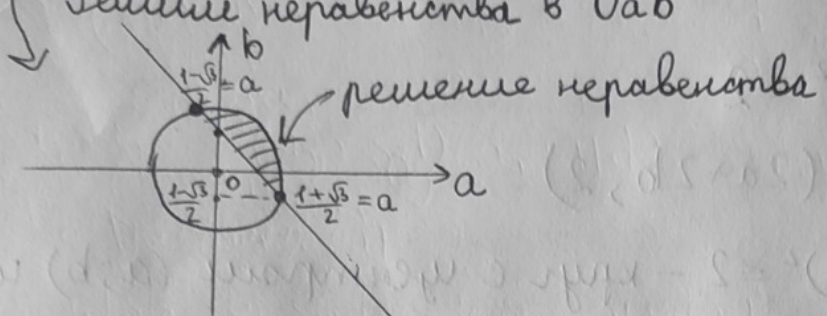 решим неравенства в Oab
b
(1-√3)/2 = a
решение неравенства
0
a
(1-√3)/2
(1+√3)/2 = a